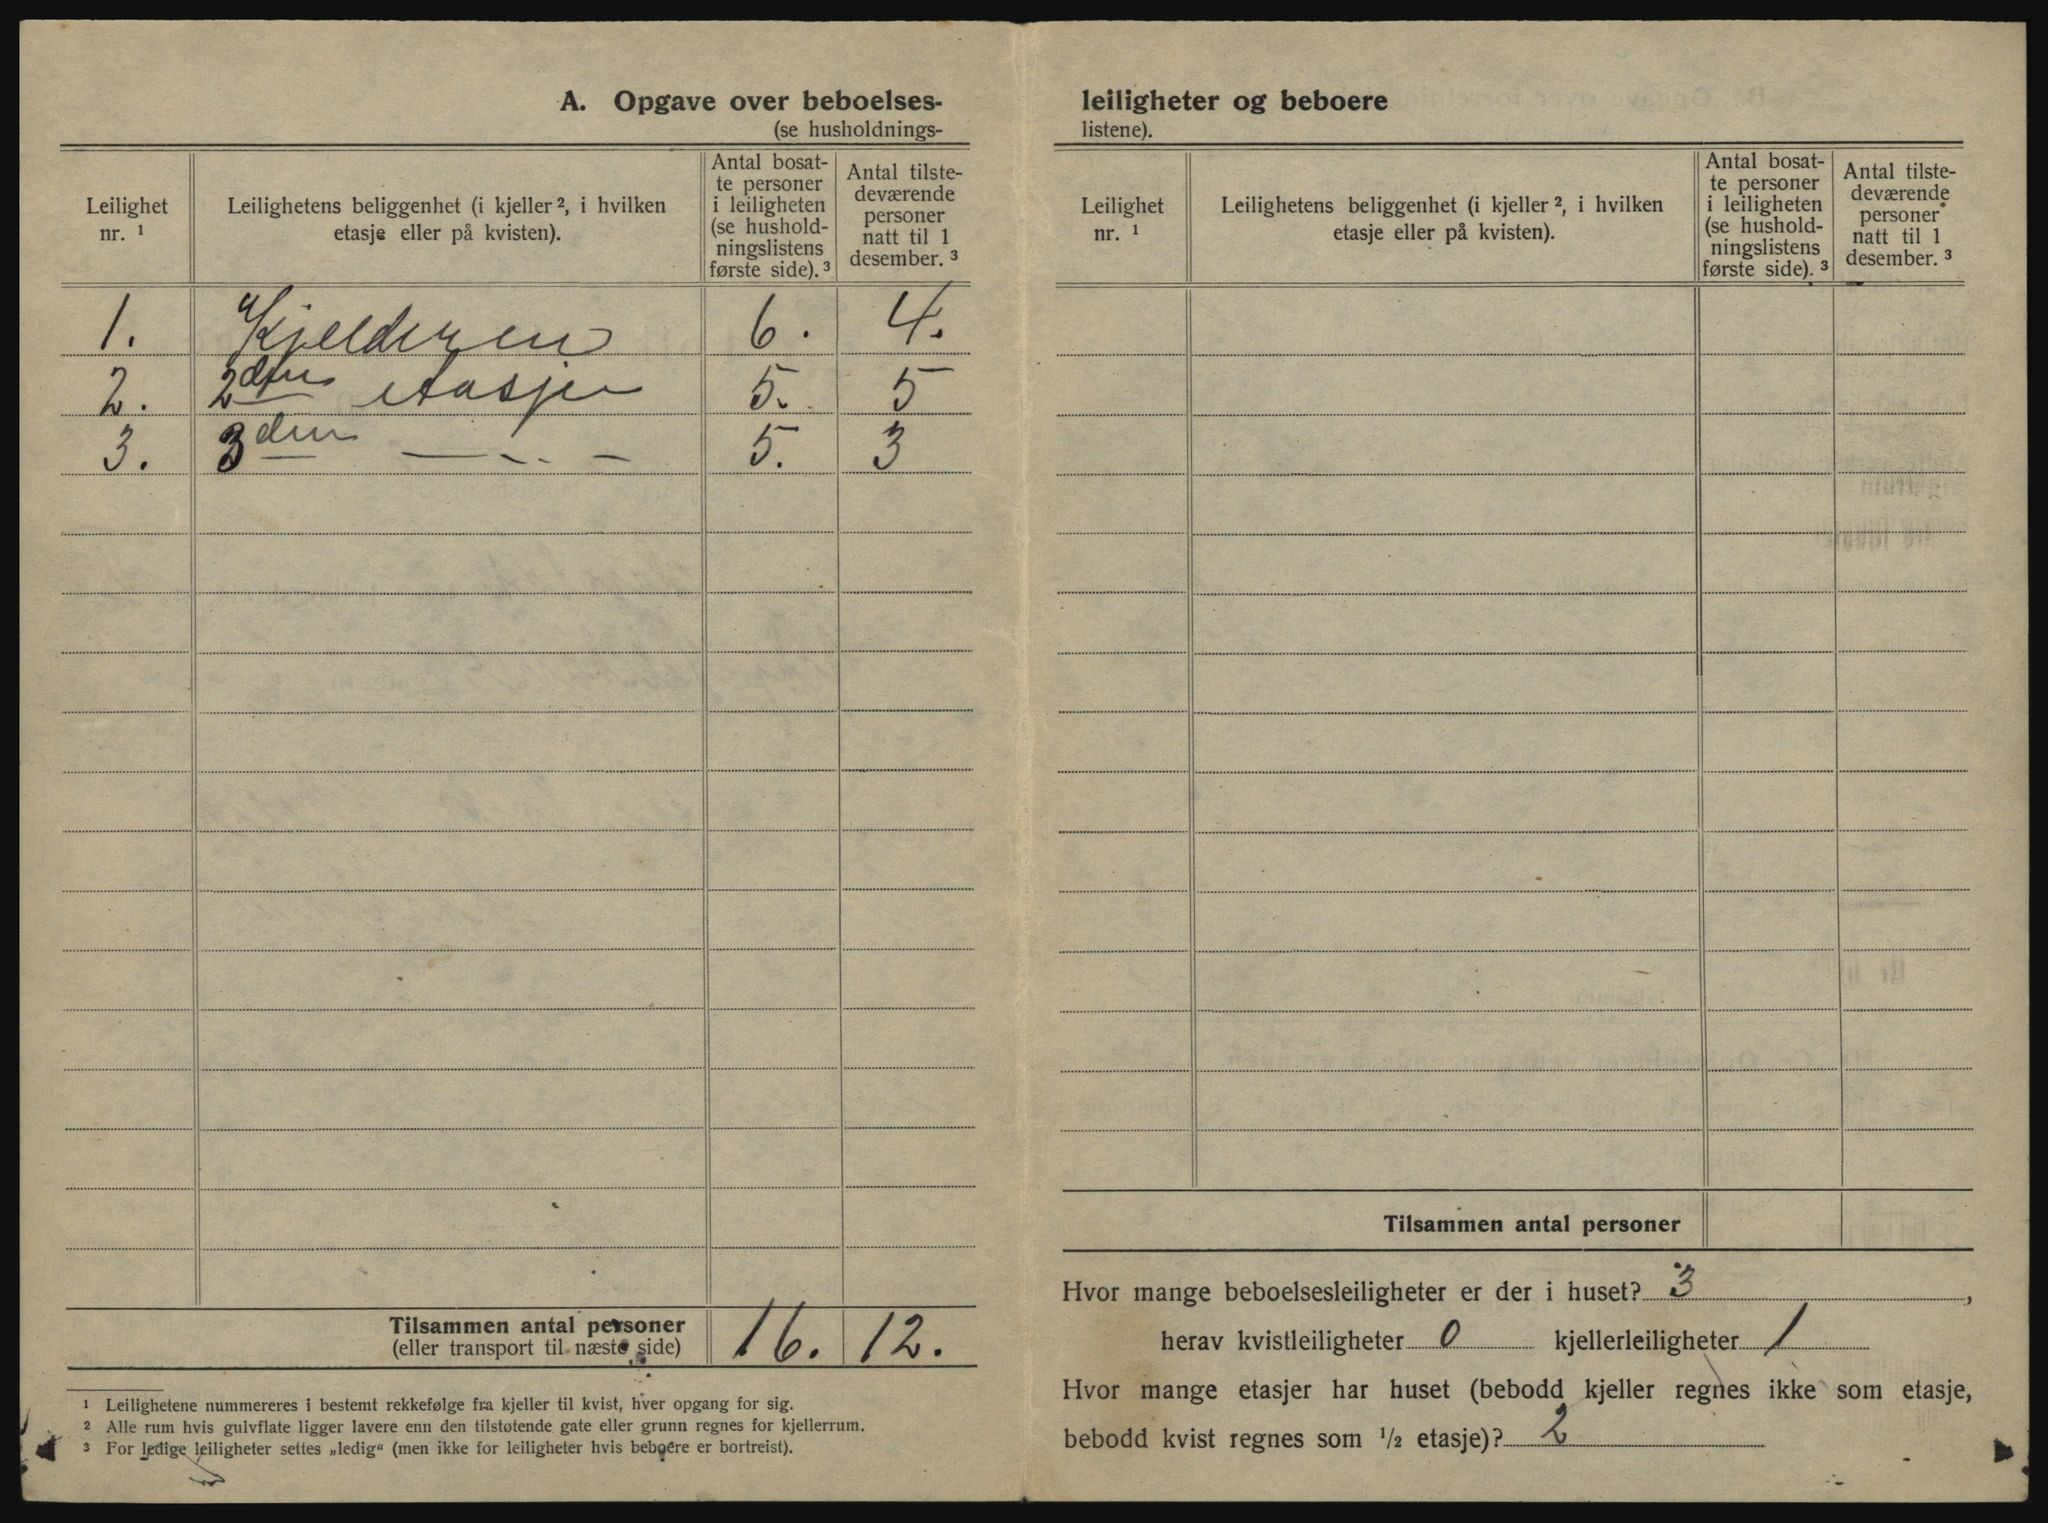 A. Opgave over beboelses-
(se husholdnings-
Leilighet nr. ¹
Leilighetens beliggenhet (i kjeller ², i hvilken etasje eller på kvisten).
Antal bosat-
te personer
i leiligheten
(se hushold-
ningslistens
første side). ³
Antal tilste-
deværende
personer
natt til 1
desember. ³
1. Kjelderen 6. 4.
2. 2den etasje 5. 5
3. 3den — - - — 5. 3
Tilsammen antal personer 16. 12.
(eller transport til næste side)
¹ Leilighetene nummereres i bestemt rekkefølge fra kjeller til kvist, hver opgang for sig.
² Alle rum hvis gulvflate ligger lavere enn den tilstøtende gate eller grunn regnes for kjellerrum.
³ For ledige leiligheter settes „ledig“ (men ikke for leiligheter hvis beboere er bortreist).
leiligheter og beboere
listene).
Leilighet nr. ¹
Leilighetens beliggenhet (i kjeller ², i hvilken etasje eller på kvisten).
Antal bosat-
te personer
i leiligheten
(se hushold-
ningslistens
første side). ³
Antal tilste-
deværende
personer
natt til 1
desember. ³
Tilsammen antal personer
Hvor mange beboelsesleiligheter er der i huset? 3,
herav kvistleiligheter 0 kjellerleiligheter 1
Hvor mange etasjer har huset (bebodd kjeller regnes ikke som etasje,
bebodd kvist regnes som ½ etasje)? 2